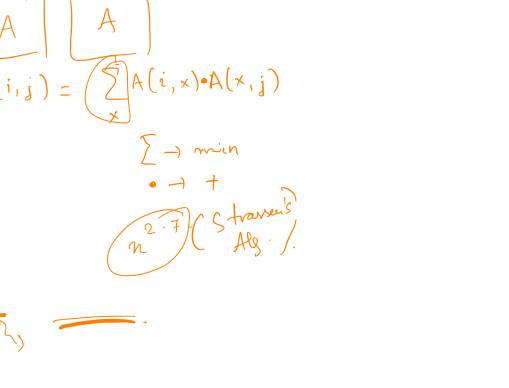 A A
i, j) = Σ A(i, x) • A(x, j)
x
Σ → min
• → +
n^2.7 (Strassen's
Alg.)